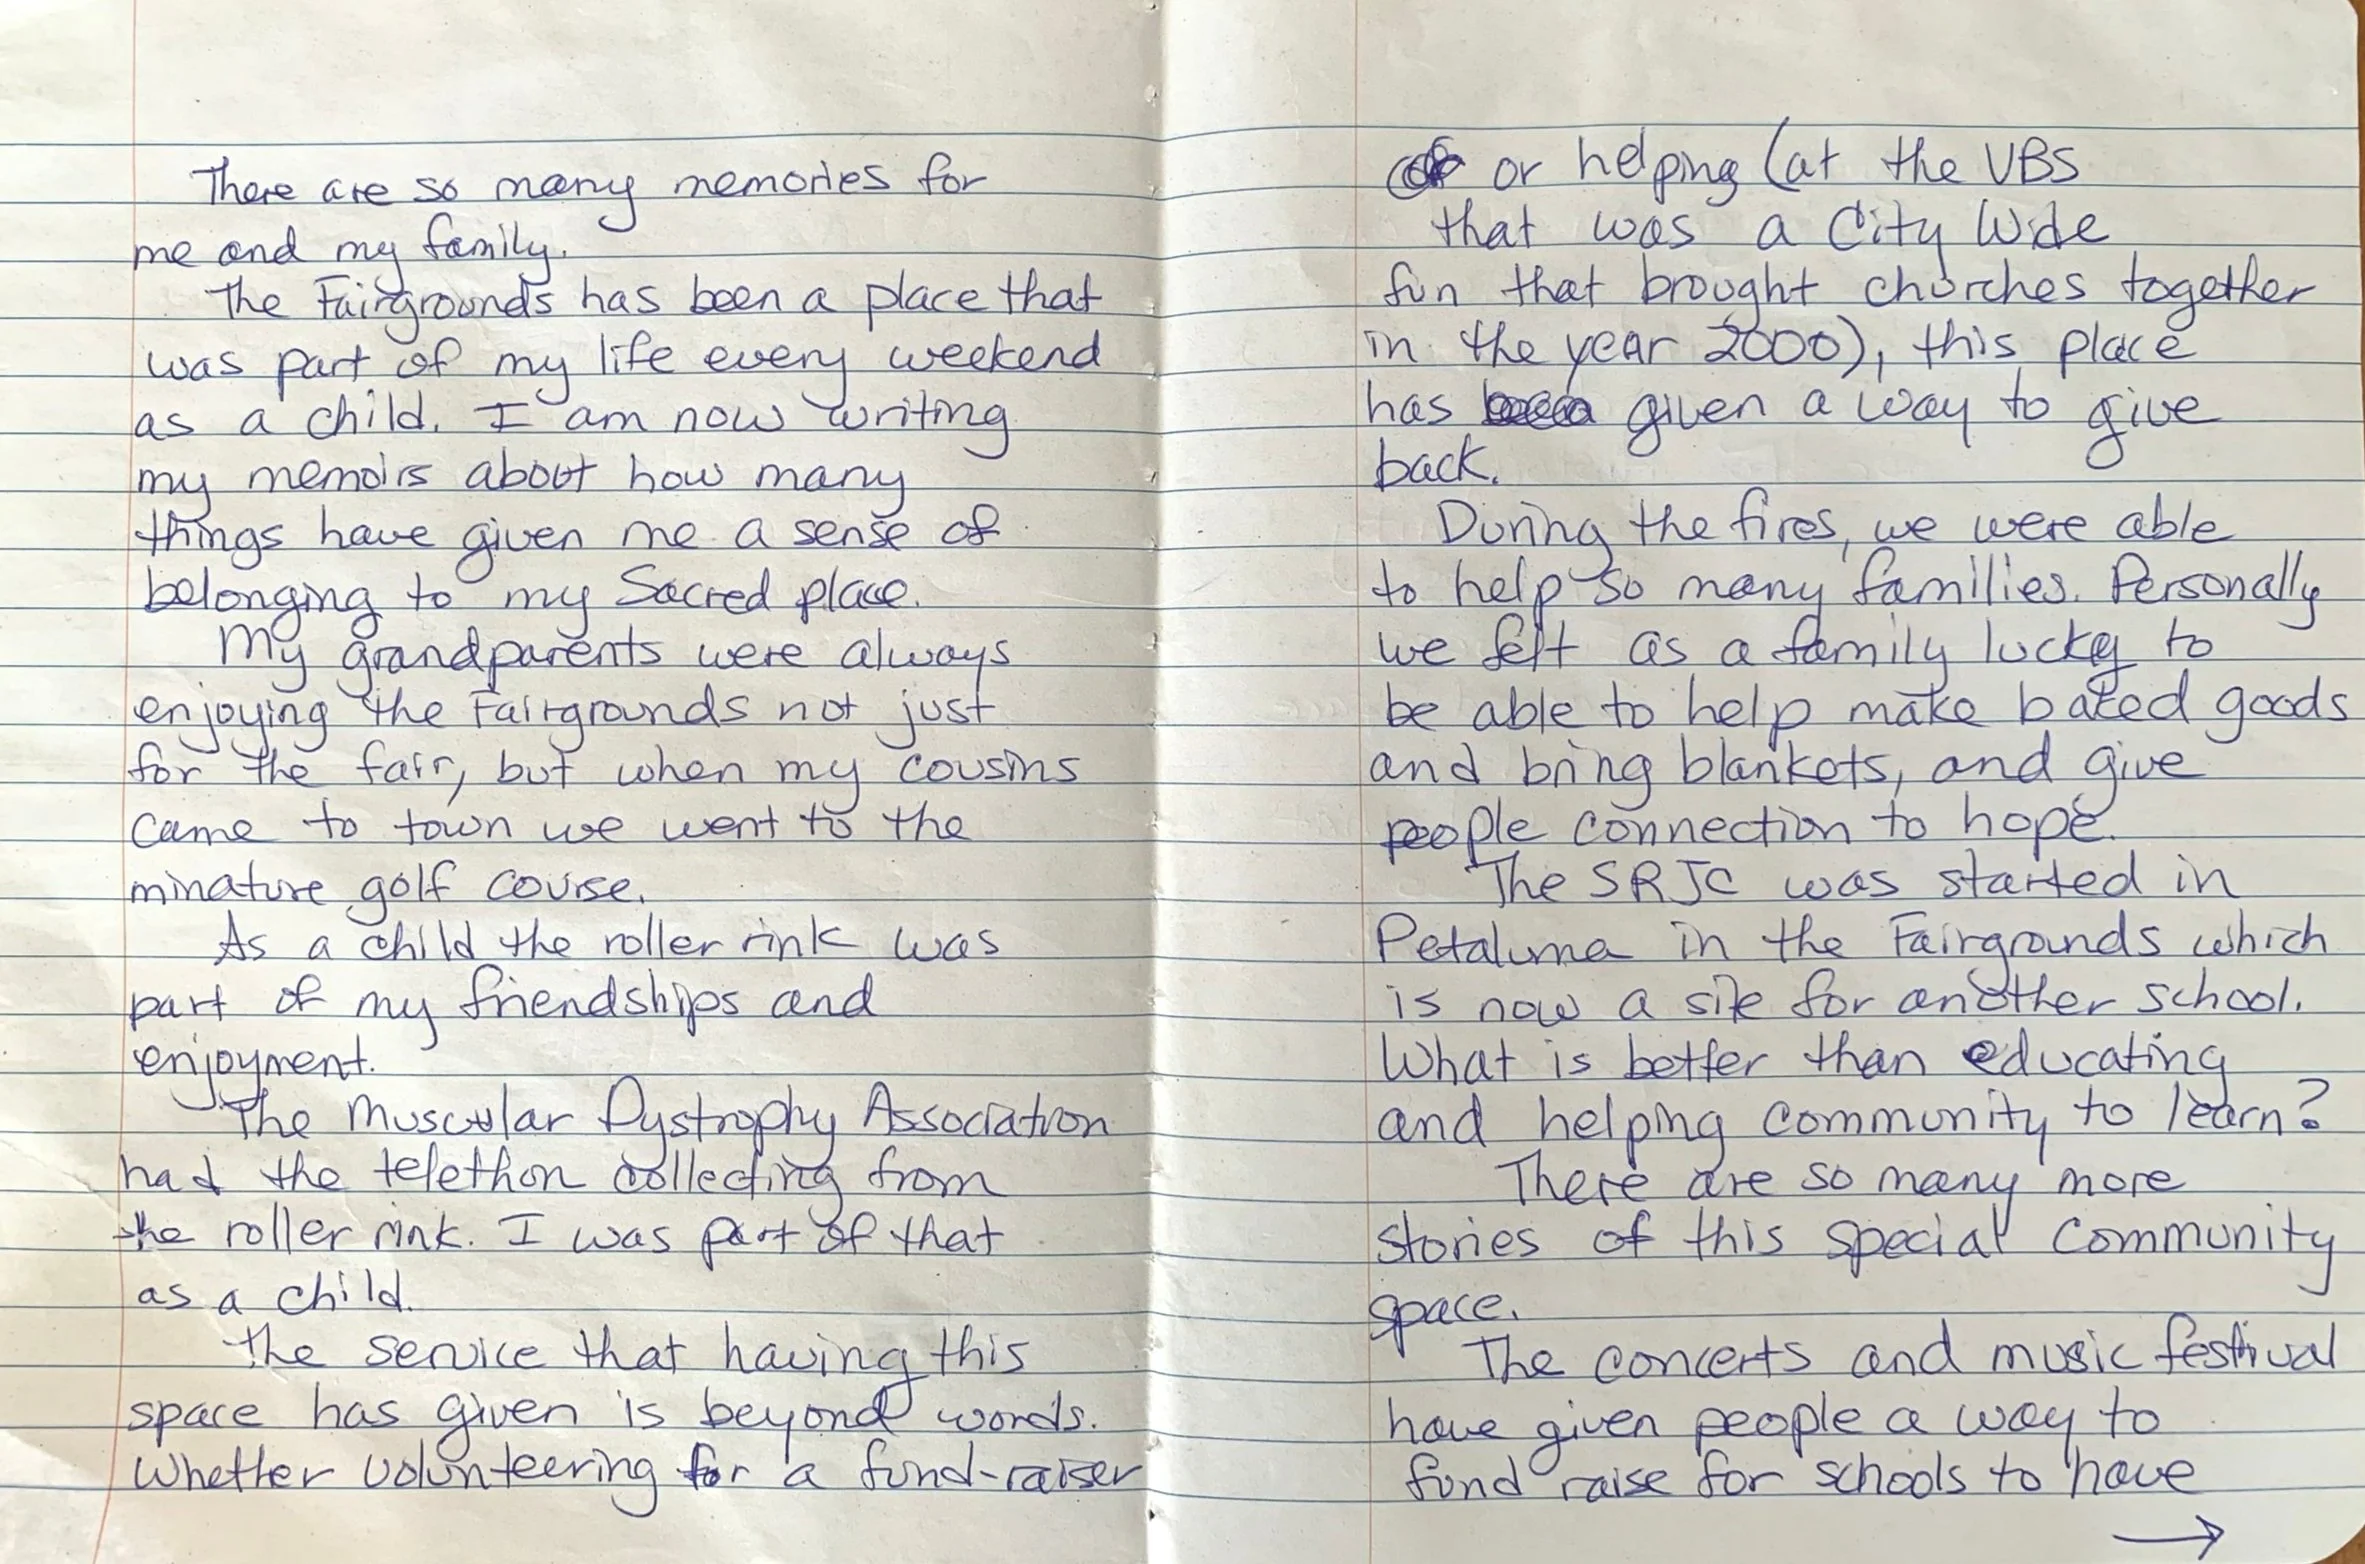 There are so many memories for
me and my family.
The Fairgrounds has been a place that
was part of my life every weekend
as a child. I am now writing
my memoirs about how many
things have given me a sense of
belonging to my Sacred place.
My grandparents were always
enjoying the Fairgrounds not just
for the fair, but when my cousins
came to town we went to the
minature golf course.
As a child the roller rink was
part of my friendships and
enjoyment.
The Muscular Dystrophy Association
had the telethon collecting from
the roller rink. I was part of that
as a child.
The service that having this
space has given is beyond words.
Whether volunteering for a fund-raiser
or helping (at the VBS
that was a City Wide
fun that brought churches together
in the year 2000), this place
has given a way to give
back.
During the fires, we were able
to help so many families. Personally
we felt as a family lucky to
be able to help make baked goods
and bring blankets, and give
people connection to hope.
The SRJC was started in
Petaluma in the Fairgrounds which
is now a site for another school.
What is better than educating
and helping community to learn?
There are so many more
stories of this special community
space.
The concerts and music festival
have given people a way to
fund raise for schools to have
→